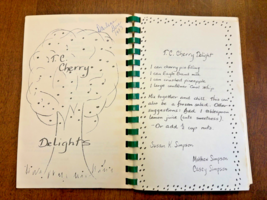 T.C.
Cherry
Delights
T.C. Cherry Delight
1 can cherry pie filling
1 can Eagle Brand milk
1 can crushed pineapple
1 large
Mix together and chill. This can
also be a frozen salad. Other
suggestions: Add
lemon juice (cuts sweetness)
Or add 1 cup nuts
Susan K. Simpson
Mother Simpson
Chissy Simpson